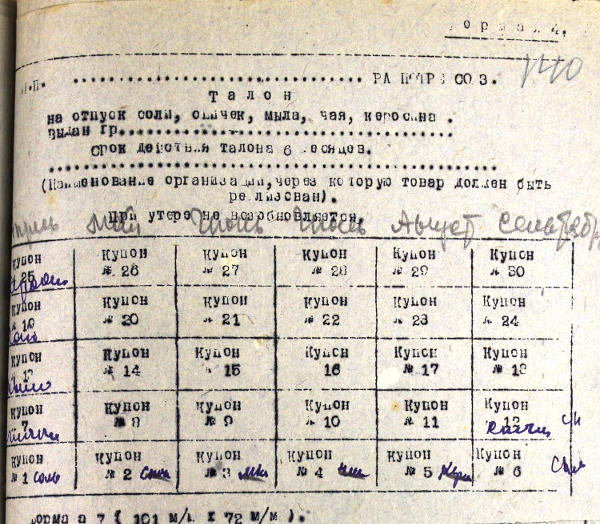 Форма 4.
М.П. РАЙПОТРЕБСОЮЗ.
Талон
на отпуск соли, спичек, мыла, чая, керосина.
Выдан гр.
Срок действия талона 6 месяцев.
(Наименование организации, через которую товар должен быть
реализован).
При утере не возобновляется.
Май Июнь Июль Август Сентябрь
Купон Купон Купон Купон Купон Купон
№ 25 № 26 № 27 № 28 № 29 № 30
Купон Купон Купон Купон Купон Купон
№ 19 № 20 № 21 № 22 № 23 № 24
Купон Купон Купон Купон Купон Купон
№ 13 № 14 № 15 16 № 17 № 18
Купон Купон Купон Купон Купон Купон
7 № 8 № 9 № 10 № 11 12
спички
Купон Купон Купон Купон Купон Купон
№ 1 соль № 2 № 3 № 4 № 5 № 6
форма 7 ( 101 м/м. х 72 м/м ).